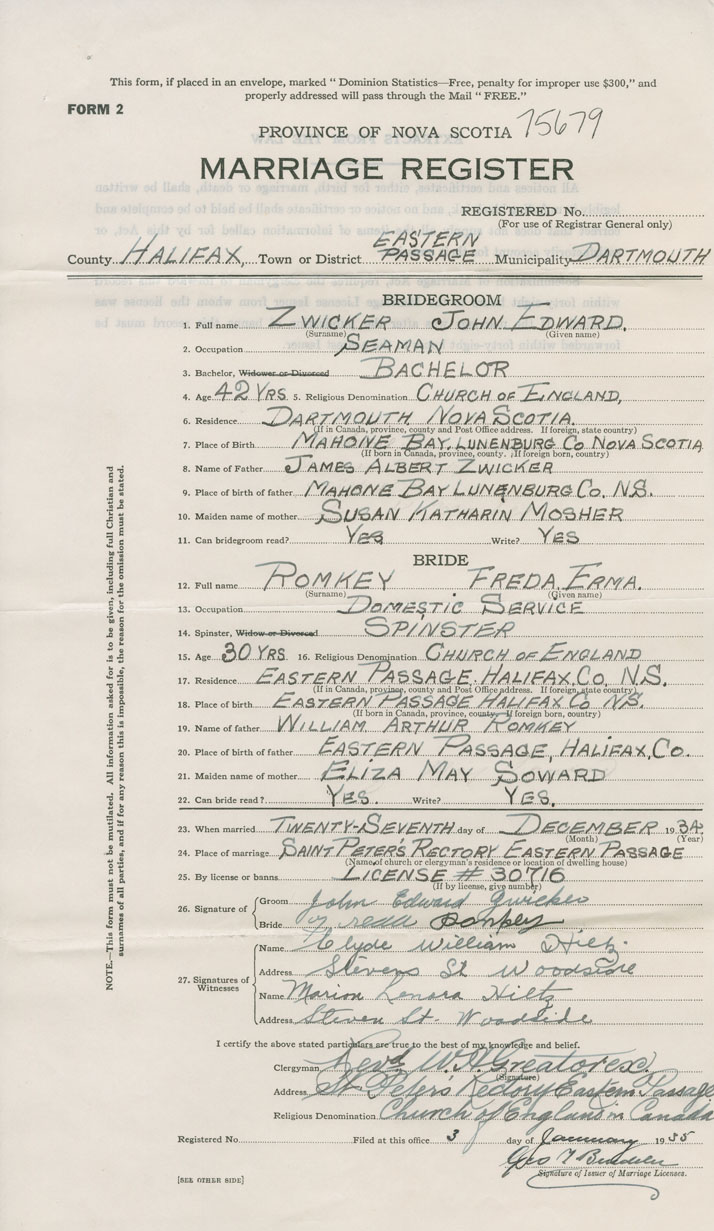 This form, if placed in an envelope, marked " Dominion Statistics—Free, penalty for improper use $300," and
properly addressed will pass through the Mail " FREE."
FORM 2
PROVINCE OF NOVA SCOTIA 75679
MARRIAGE REGISTER
REGISTERED No.
(For use of Registrar General only)
County HALIFAX, Town or District EASTERN PASSAGE Municipality DARTMOUTH
BRIDEGROOM
1. Full name ZWICKER JOHN EDWARD.
(Surname) (Given name)
2. Occupation SEAMAN
3. Bachelor, Widower or Divorced BACHELOR
4. Age 42 YRS 5. Religious Denomination CHURCH OF ENGLAND,
6. Residence DARTMOUTH NOVA SCOTIA.
(If in Canada, province, county and Post Office address. If foreign, state country)
7. Place of Birth MAHONE BAY, LUNENBURG CO NOVA SCOTIA
(If born in Canada, province, county. If foreign born, country)
8. Name of Father JAMES ALBERT ZWICKER
9. Place of birth of father MAHONE BAY LUNENBURG CO. N.S.
10. Maiden name of mother SUSAN KATHARIN MOSHER
11. Can bridegroom read? YES Write? YES
BRIDE
12. Full name ROMKEY FREDA ERMA.
(Surname) (Given name)
13. Occupation DOMESTIC SERVICE
14. Spinster, Widow or Divorced SPINSTER
15. Age 30 YRS 16. Religious Denomination CHURCH OF ENGLAND
17. Residence EASTERN PASSAGE, HALIFAX, CO. N.S.
(If in Canada, province, county and Post Office address. If foreign, state country)
18. Place of birth EASTERN PASSAGE HALIFAX CO N.S.
(If born in Canada, province, county. If foreign born, country)
19. Name of father WILLIAM ARTHUR ROMKEY
20. Place of birth of father EASTERN PASSAGE, HALIFAX, CO.
21. Maiden name of mother ELIZA MAY SOWARD
22. Can bride read? YES. Write? YES.
23. When married TWENTY-SEVENTH day of DECEMBER 1934
(Month) (Year)
24. Place of marriage SAINT PETER'S RECTORY EASTERN PASSAGE
(Name of church or clergyman's residence or location of dwelling house)
25. By license or banns LICENSE # 30716
(If by license, give number)
26. Signature of Groom John Edward Zwicker
Bride Freda Romkey
27. Signatures of Witnesses
Name Clyde William Hiltz
Address Stevens St Woodside
Name Marion Lenora Hiltz
Address Steven St. Woodside
I certify the above stated particulars are true to the best of my knowledge and belief.
Clergyman Revd W. H. Greatorex.
(Signature)
Address St Peter's Rectory Eastern Passage
Religious Denomination Church of England in Canada
Registered No. Filed at this office 3 day of January 1935
Geo
Signature of Issuer of Marriage Licenses.
[SEE OTHER SIDE]
NOTE.—This form must not be mutilated. All information asked for is to be given, including full Christian and
surnames of all parties, and if for any reason this is impossible, the reason for the omission must be stated.